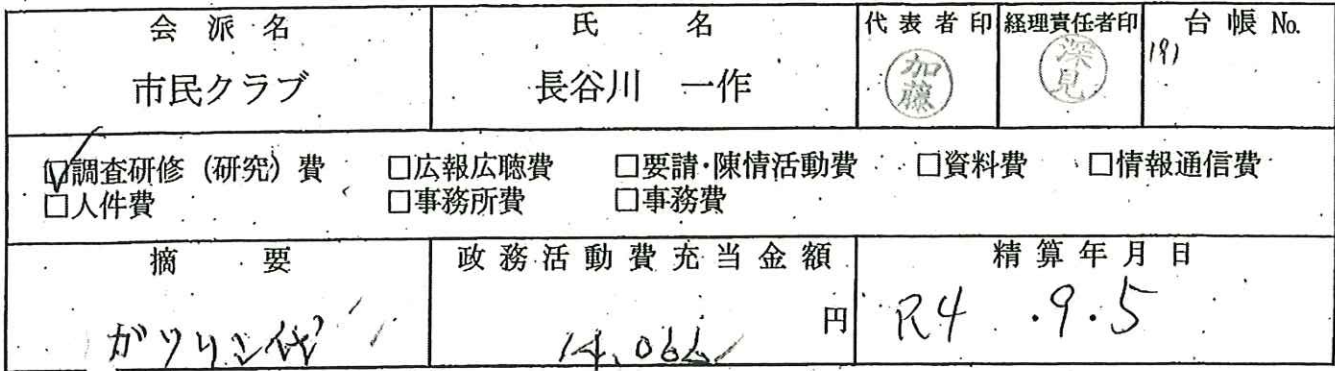 会派名 氏名 代表者印 経理責任者印 台帳No.
市民クラブ 長谷川 一作 加藤 深見 191
☑調査研修(研究)費 □広報広聴費 □要請・陳情活動費 □資料費 □情報通信費
□人件費 □事務所費 □事務費
摘要 政務活動費充当金額 精算年月日
ガソリン代 14,066 円 R4.9.5